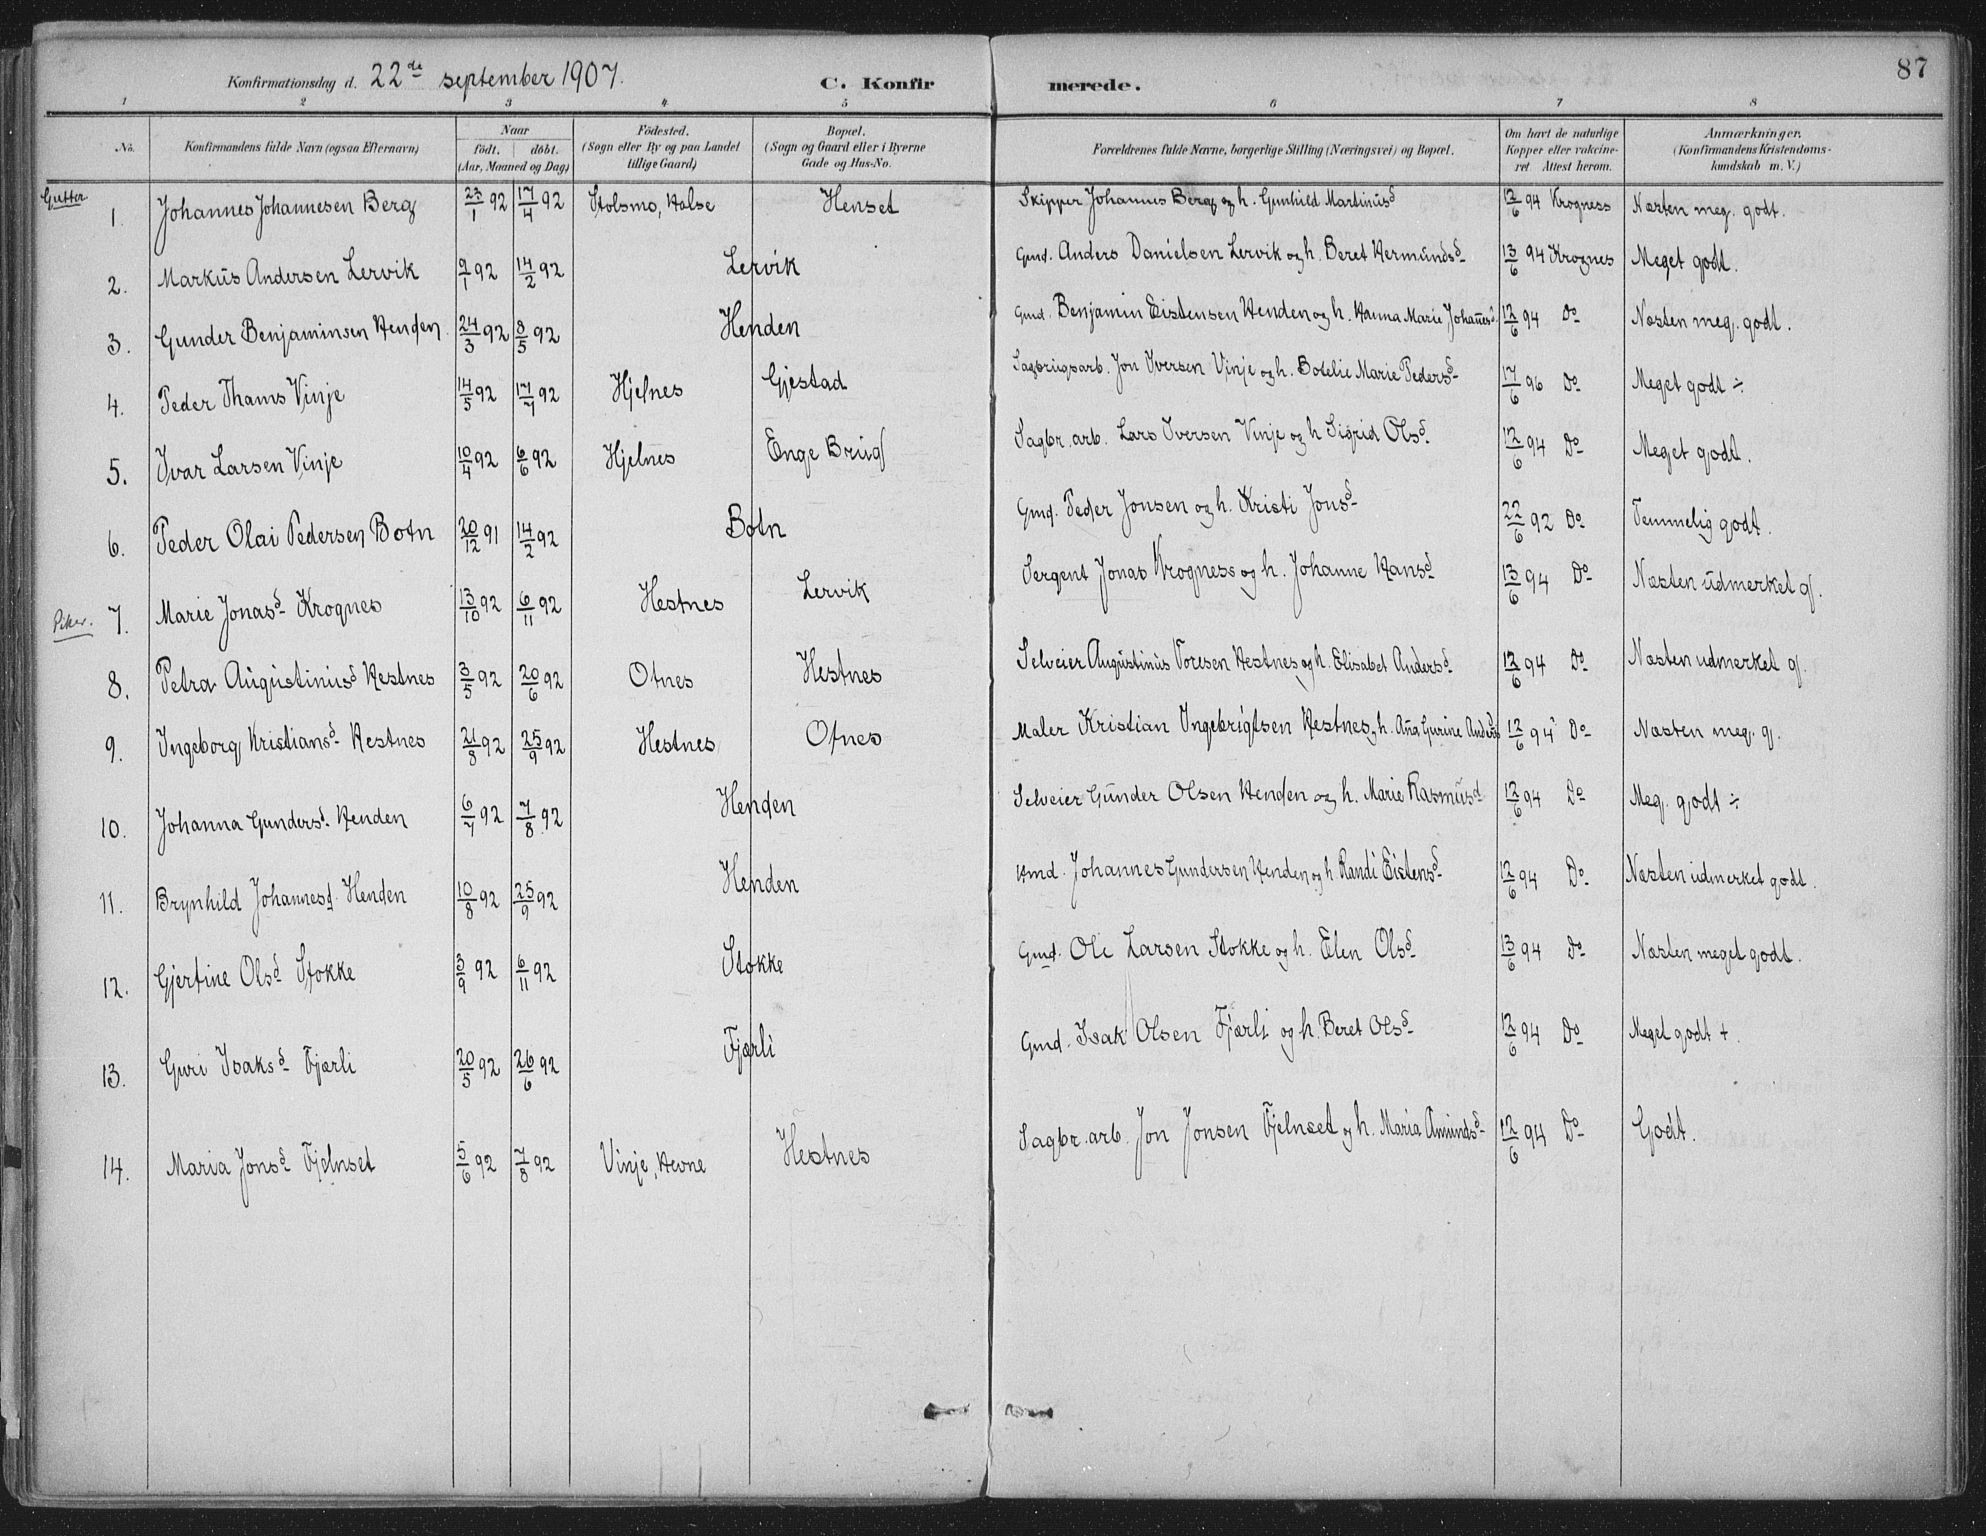 87
Konfirmationsdag d. 22de september 1907. C. Konfirmerede.
1 2 3 4 5 6 7 8
No. Konfirmandens fulde Navn (ogsaa Efternavn) Naar födt. döbt. (Aar, Maaned og Dag) Födested. (Sogn eller By og paa Landet tillige Gaard) Bopæl. (Sogn og Gaard eller i Byerne Gade og Hus-No. Forældrenes fulde Navne, borgerlige Stilling (Næringsvei) og Bopæl. Om havt de naturlige Kopper eller vaccineret Attest herom. Anmærkninger. (Konfirmandens Kristendomskundskab m. V.)
Gutter
1. Johannes Johannesen Berg 23/1 92 17/4 92 Stolsmo, Halse Henset Skipper Johannes Berg og h. Gunhild Martinusd 12/6 94 Krogness Næsten meg. godt.
2. Markus Andersen Lervik 9/1 92 14/2 92 Lervik Gmd. Anders Danielsen Lervik og h. Beret Hermundsd 13/6 94 Krognes Meget godt.
3. Gunder Benjaminsen Henden 24/3 92 8/5 92 Henden Gmd. Benjamin Eistensen Henden og h. Hanna Marie Johañesd. 12/6 94 Do Næsten meg. godt.
4. Peder Thams Vinje 14/5 92 17/7 92 Hjelnes Gjestad Sagbrugsarb. Jon Iversen Vinje og h. Botelie Marie Pedersd 17/6 96 Do Meget godt ÷
5. Ivar Larsen Vinje 10/4 92 6/6 92 Hjelnes Enge Brug Sagbr. arb. Lars Iversen Vinje og h Sigrid Olsd. 12/6 94 Do Meget godt.
6. Peder Olai Pedersen Botn 20/12 91 14/2 92 Botn Gmd. Peder Jonsen og h. Kristi Jonsd 22/6 92 Do Temmelig godt.
Piker.
7. Marie Jonasd Krognes 13/10 92 6/11 92 Hestnes Lervik Sergent Jonas Krogness og h. Johanne Hansd 13/6 94 Do Næsten udmerket g.
8. Petra Augustinusd Hestnes 3/5 92 20/6 92 Otnes Hestnes Selveier Augustinus Toresen Hestnes og h. Elisabet Andersd 12/6 94 Do Næsten udmerket g.
9. Ingeborg Kristiansd Hestnes 21/8 92 25/9 92 Hestnes Otnes Maler Kristian Ingebrigtsen Hestnes, h. Aña Gurine Andersd 12/6 94 Do Næsten meg. g.
10. Johanna Gundersd. Henden 6/7 92 7/8 92 Henden Selveier Gunder Olsen Henden og h. Marie Rasmusd 12/6 94 Do Meg. godt ÷
11. Brynhild Johannesd. Henden 10/8 92 25/9 92 Henden Hmd. Johannes Gundersen Henden og h Randi Eistensd 12/6 94 Do Næsten udmerket godt.
12. Gjertine Olsd Stokke 3/9 92 6/11 92 Stokke Gmd. Ole Larsen Stokke og h. Elen Olsd 13/6 94 Do Næsten meget godt.
13. Guri Isaksd Fjærli 20/5 92 26/6 92 Fjærli Gmd. Isak Olsen Fjærli og h. Beret Olsd 12/6 94 Do Meget godt +.
14. Maria Jonsd Fjelnset 5/6 92 7/8 92 Vinje, Hevne Hestnes Sagbr. arb. Jon Jonsen Fjelnset og h. Maria Amundsd 12/6 94 Do Godt.